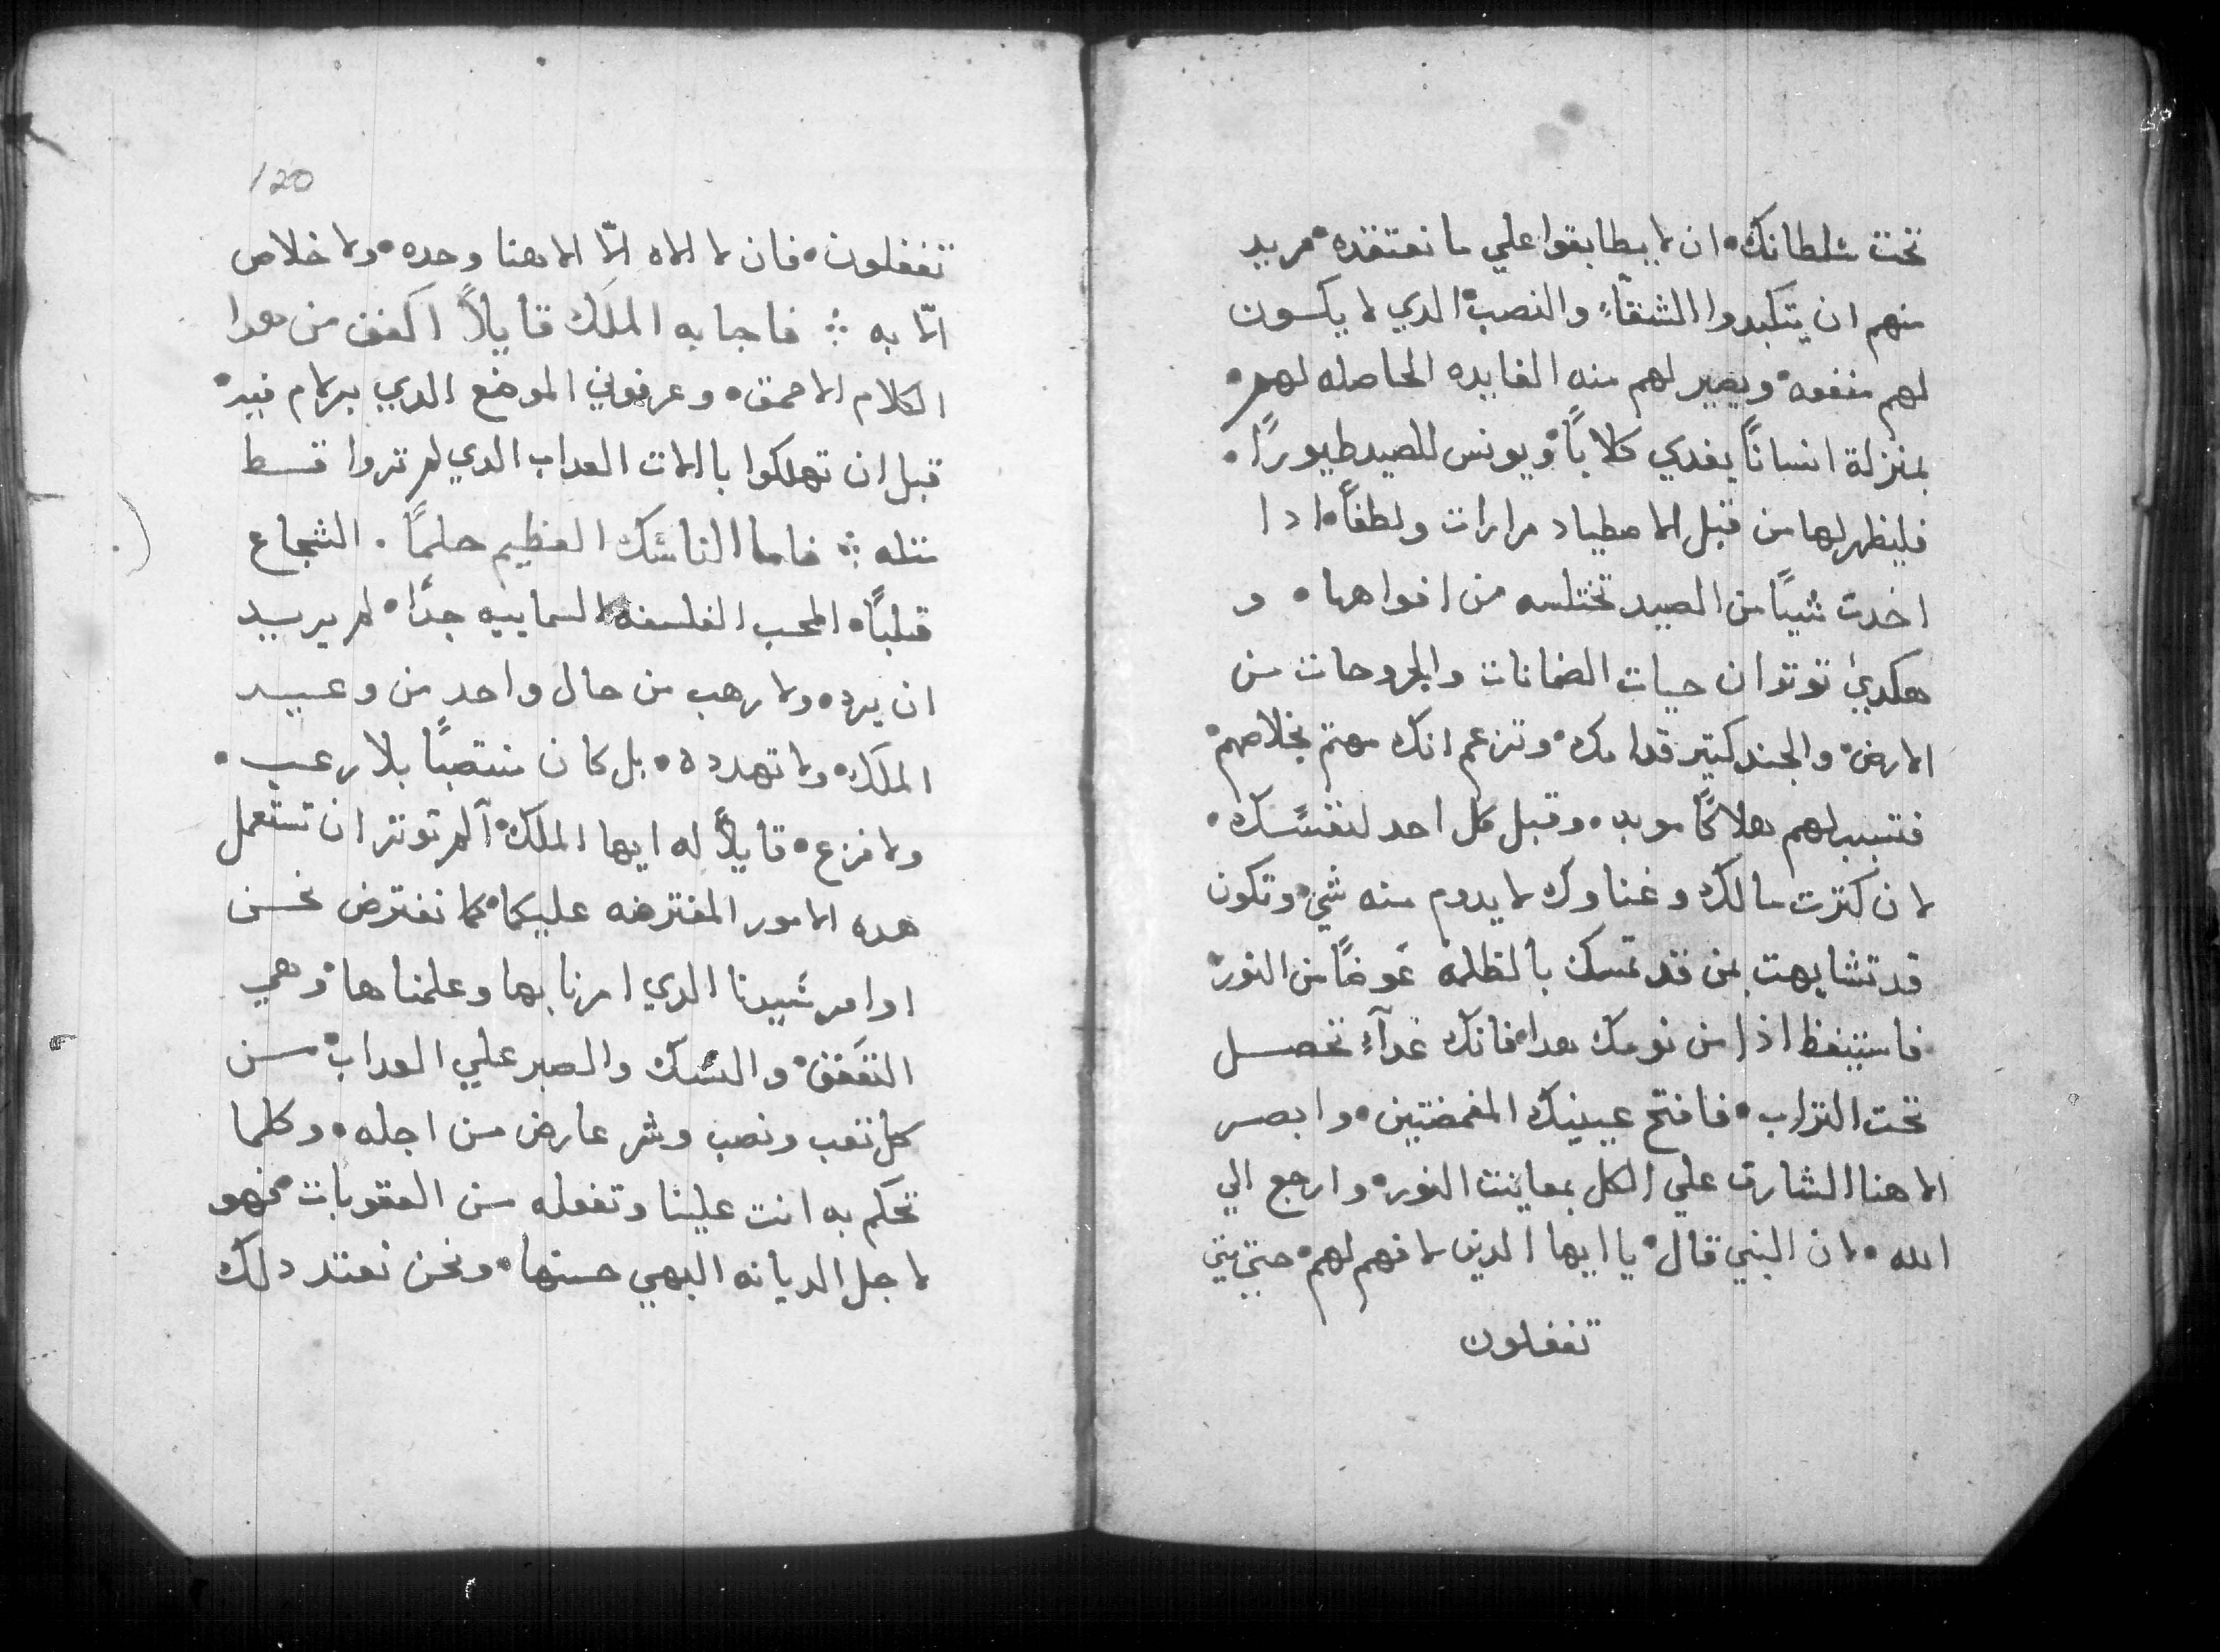 تحت سلطانك • ان لا يطابقوا علي ما نعتقده • مريد
منهم ان يتكبدوا الشقآء والنصب • الدي لا يكسون
لهم منفعه • ويصير لهم منه الفايده الحاصله لهم •
بمنزلة انسانًا يغدي كلابًا • ويونس للصيد طيورًا •
فليظهر لها من قبل الاصطياد مرارات ولطفًا • ادا
اخدت شيًا من الصيد تختلسه من افواهها • و
هكدي توتر ان حيات الضمانات والجروحات من
الارض • والجند كتير قدامك • وتزعم انك مهتم بخلاصهم •
فتسبب لهم هلاكًا موبد • وقبل كل احد لنفسك •
لان كترت مالك وغناوك لا يدوم منه شي • وتكون
قد تشابهت بمن قد تمسك بالظلمه عوضًا من النور •
فاستيقظ اذا من نومك هدا • فانك غدآء تحصل
تحت التراب • فافتح عينيك المغمضتين • وابصر
الاهنا الشارق علي الكل بمعاينت النور • وارجع الي
الله • لان النبي قال • يا ايها الدين لا فهم لهم • حتي متي
تغفلون
120
تغفلون • فان لا الاه الّا الاهنا وحده • ولا خلاص
الّا به ∴ فاجابه الملك قايلًا اكفف من هدا
الكلام الاحمق • وعرفوني الموضع الدي برلام فيه •
قبل ان تهلكوا بالات العداب الدي لم تروا قسط
متله ∴ فاما الناسك العظيم حلمًا . الشجاع
قلبًا • المحب الفلسفه السماييه جدًا • لم يريد
ان يرد • ولا رهب من حال واحد من وعيد
الملك • ولا تهدده • بل كان منتصبًا بلا رعب •
ولا فزع • قايلًا له ايها الملك • آلم توتر ان تستعمل
هده الامور المفترضه عليكما • كما نفترض نحسن
اوامر سيدنا الدي امرنا بها وعلمناها • وهي
التعفف • والنسك والصبر علي العداب • مسن
كل تعب ونصب وشر عارض من اجله • وكلما
تحكم به انت علينا وتفعله من العقوبات • فهو
لاجل الديانه البهي حسنها • ونحن نعتد دلك